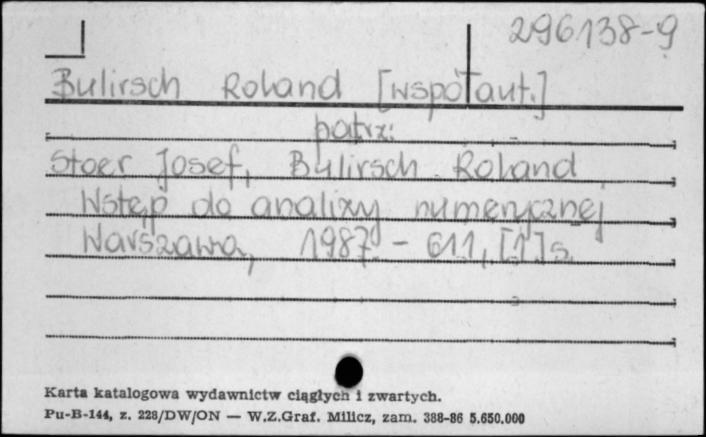 296138-9
Bulirsch Roland [współaut.]
patrz:
Stoer Josef, Bulirsch Roland
Wstęp do analizy numerycznej
Warszawa, 1987. - 611, [1] s.
Karta katalogowa wydawnictw ciągłych i zwartych.
Pu-B-144, z. 228/DW/ON — W.Z.Graf. Milicz, zam. 388-86 5.650.000